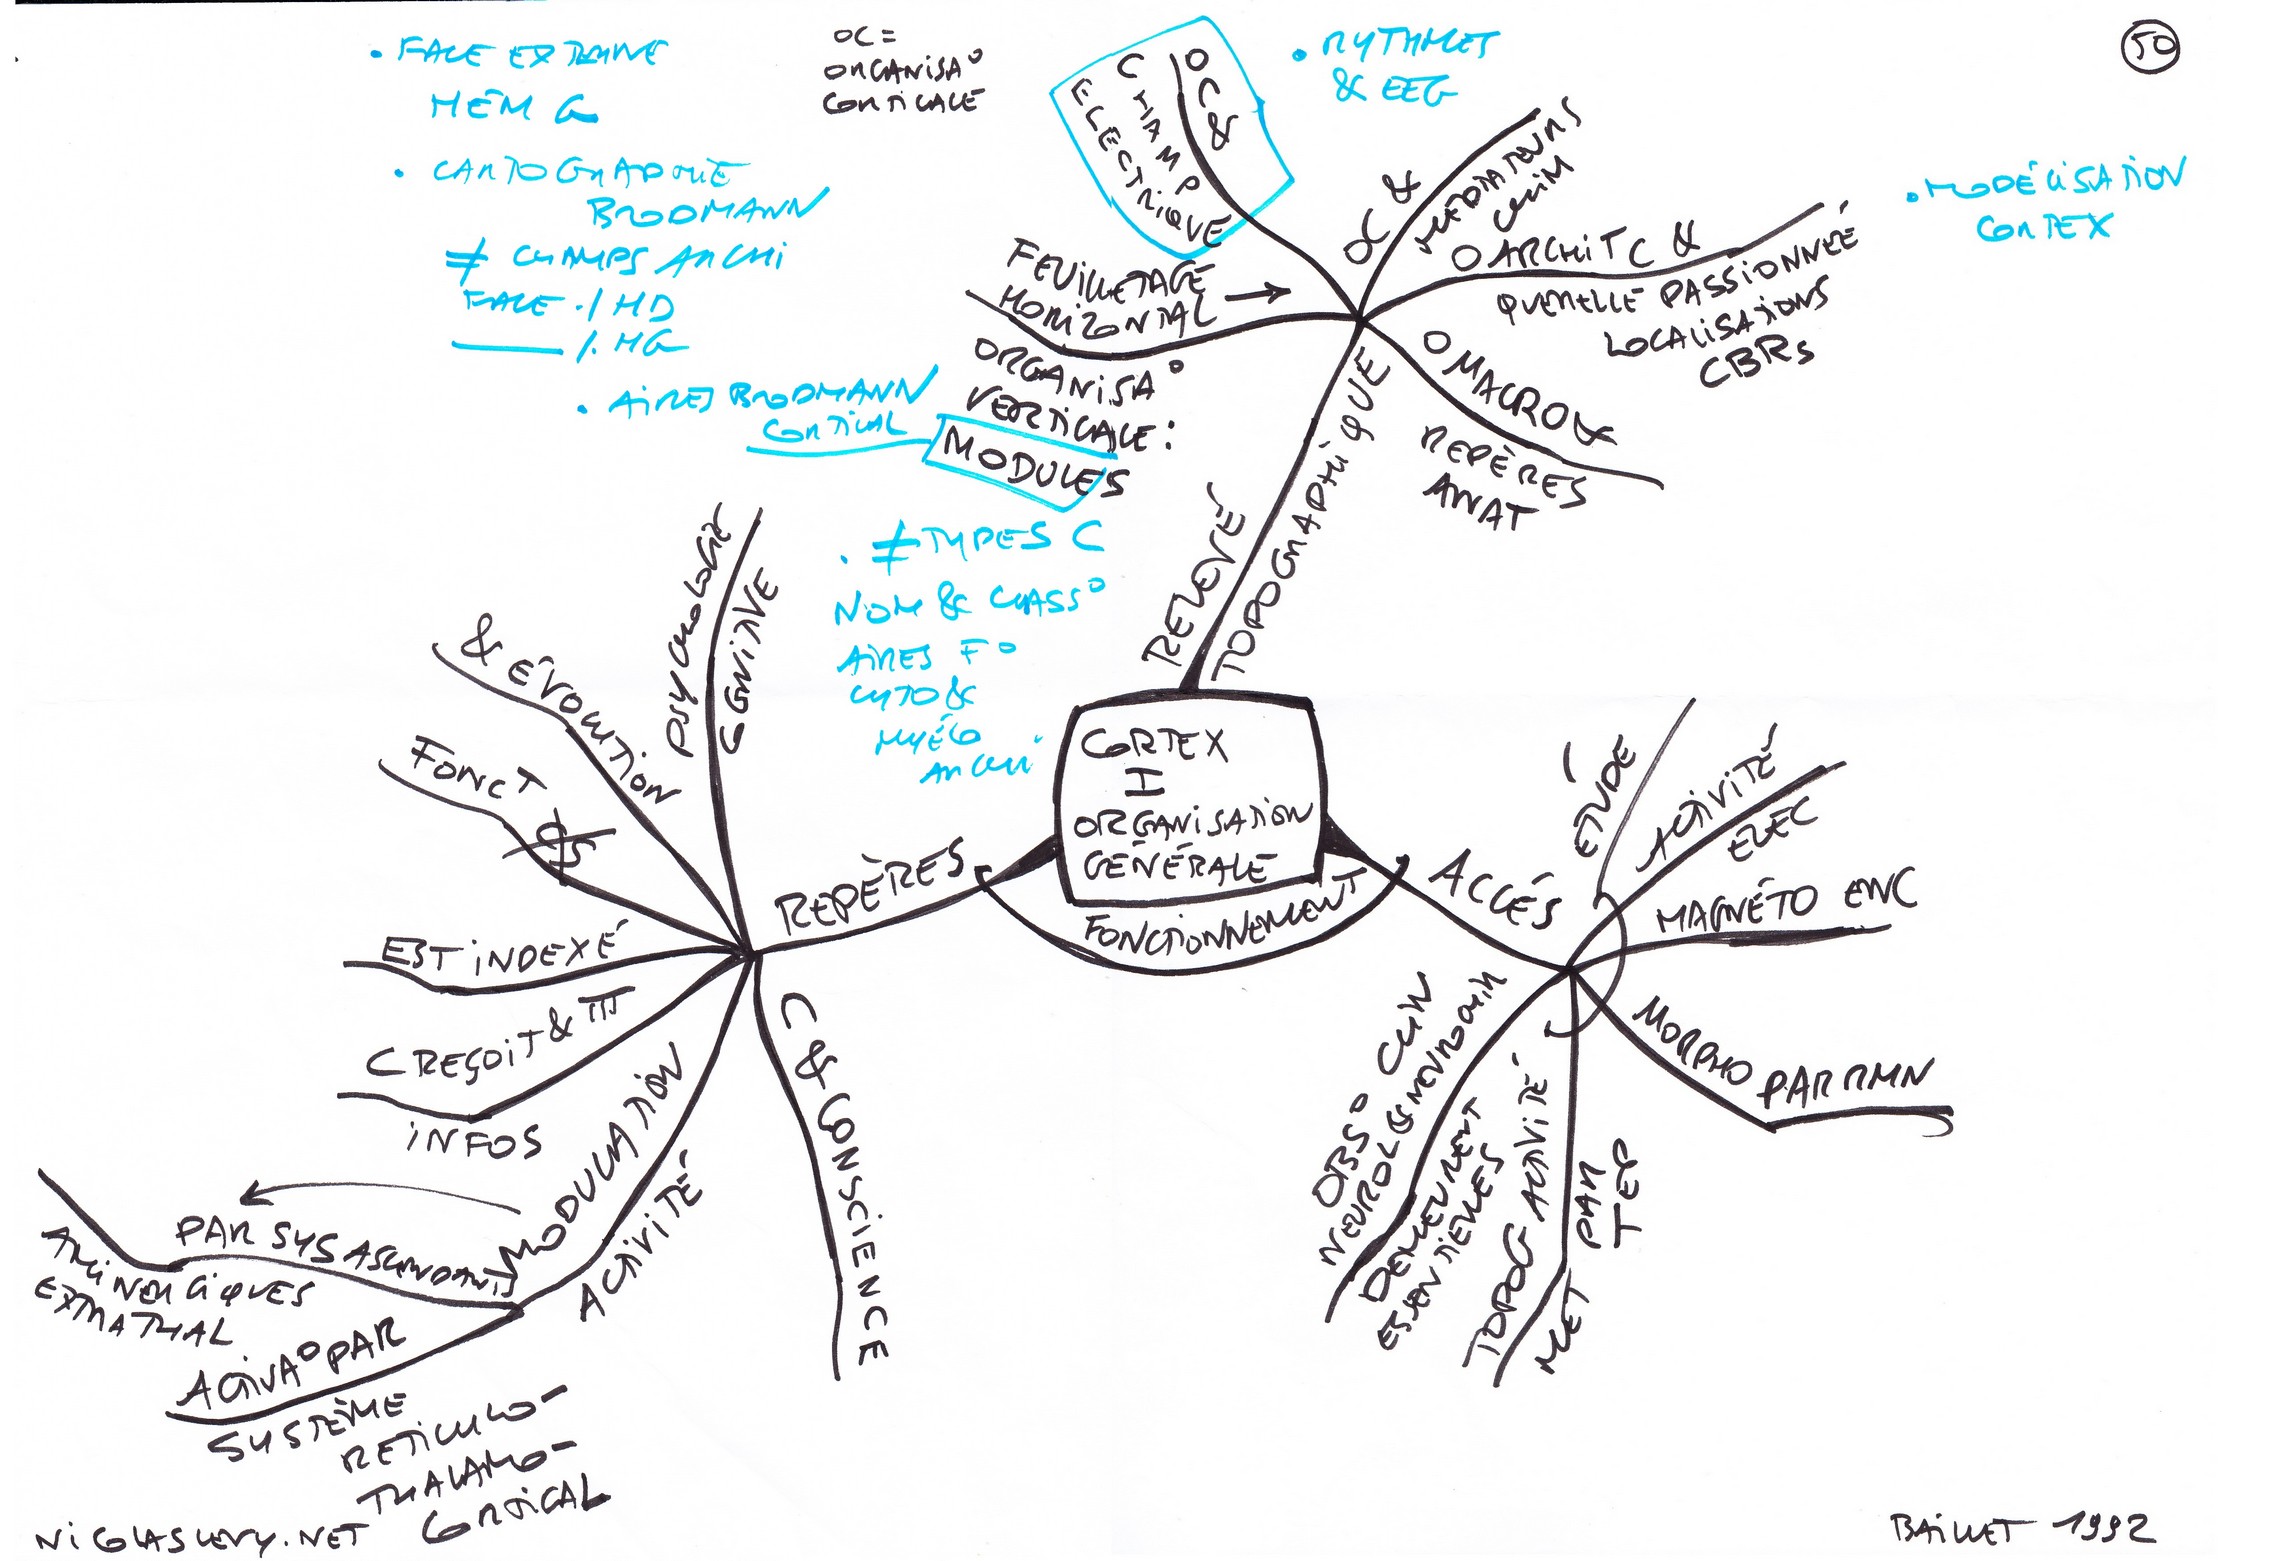 50
• FACE EXTERNE
HÉM G
• CARTOGRAPHIE
BRODMANN
≠ CHAMPS ARCHI
FACE ./ HD
——— /. HG
• AIRES BRODMANN
CORTICAL
OC =
ORGANISA°
CORTICALE
OC &
CHAMP
ELECTRIQUE
• RYTHMES
& EEG
OC &
MEDIATEURS
CHIM
• MODÉLISATION
CORTEX
O ARCHITC &
QUERELLE PASSIONNÉE
LOCALISATIONS
CBRS
O MACRO &
REPÈRES
ANAT
FEUILLETAGE →
HORIZONTAL
ORGANISA°
VERTICALE :
MODULES
• ≠ TYPES C
NOM & CLASS°
AIRES F°
CYTO &
MYÉLO
ARCHI
RELEVÉ
TOPOGRAPHIQUE
CORTEX
I
ORGANISATION
GÉNÉRALE
FONCTIONNEMENT
REPÈRES
PSYCHOLOGIE
COGNITIVE
& ÉVOLUTION
FONCT
EST INDEXÉ
C REÇOIT & TTT
INFOS
MODULATION
ACTIVITÉ
PAR SYS ASCENDANTS
AMINERGIQUES
EXTRATHAL
ACTIVA° PAR
SYSTÈME
RETICULO-
THALAMO-
CORTICAL
C & CONSCIENCE
ACCÉS
ÉTUDE
ACTIVITÉ
ELEC
MAGNÉTO ENC
MORPHO PAR RMN
TOPOG ACTIVITÉ
MET PAR
TEP
OBS° CLIN
NEUROL & NEUROCHIR
DEMEURENT
ESSENTIELLES
NICOLASLEVY.NET
BAILLET 1992